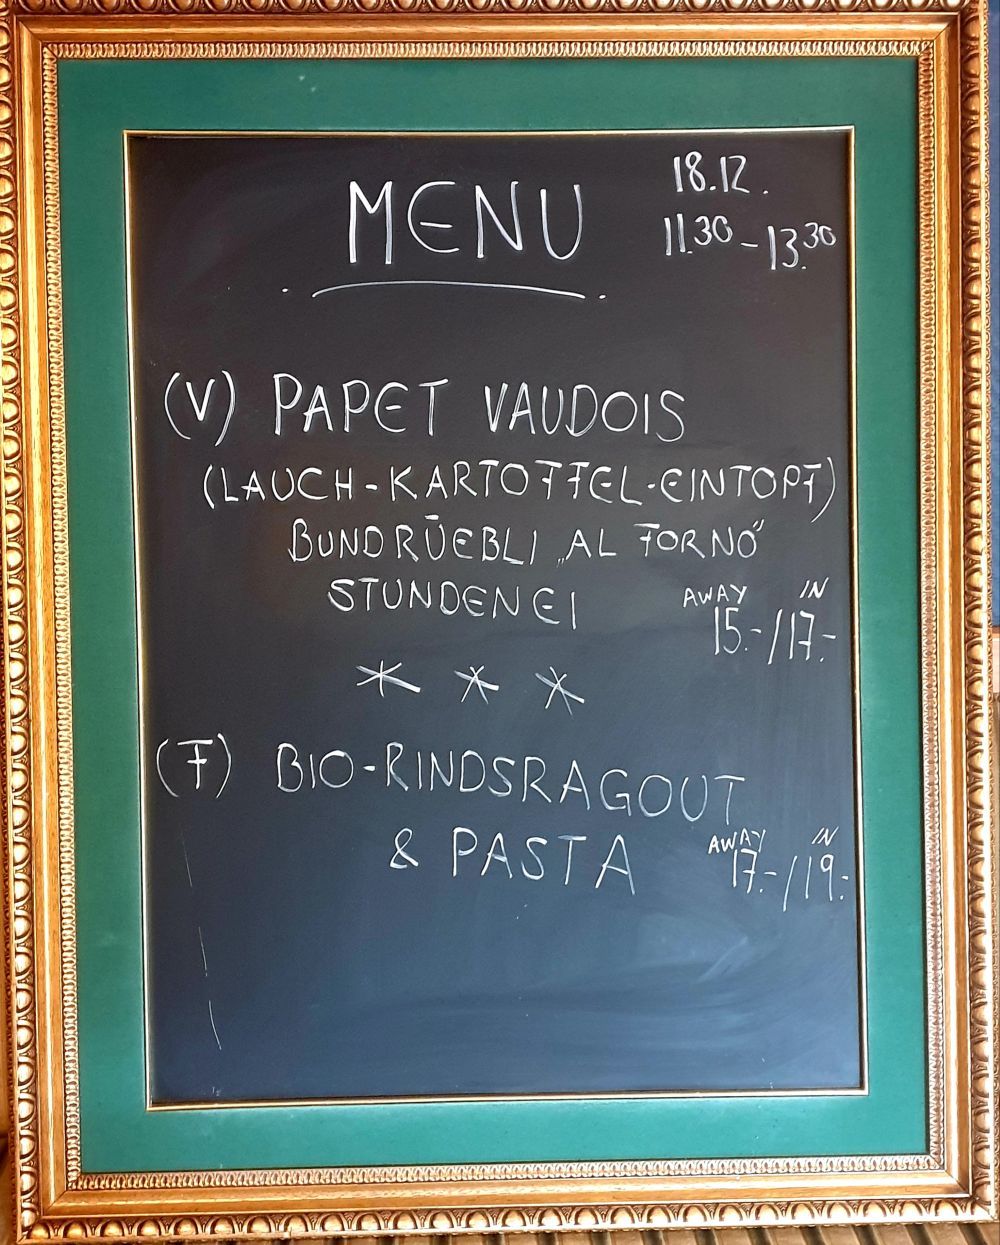 MENU
18.12.
11.30 - 13.30
(V) PAPET VAUDOIS
(LAUCH-KARTOFFEL-EINTOPF)
BUNDRÜEBLI „AL FORNO"
STUNDENEI
AWAY IN
15.-/17.-
* * *
(F) BIO-RINDSRAGOUT
& PASTA
AWAY IN
17.-/19.-